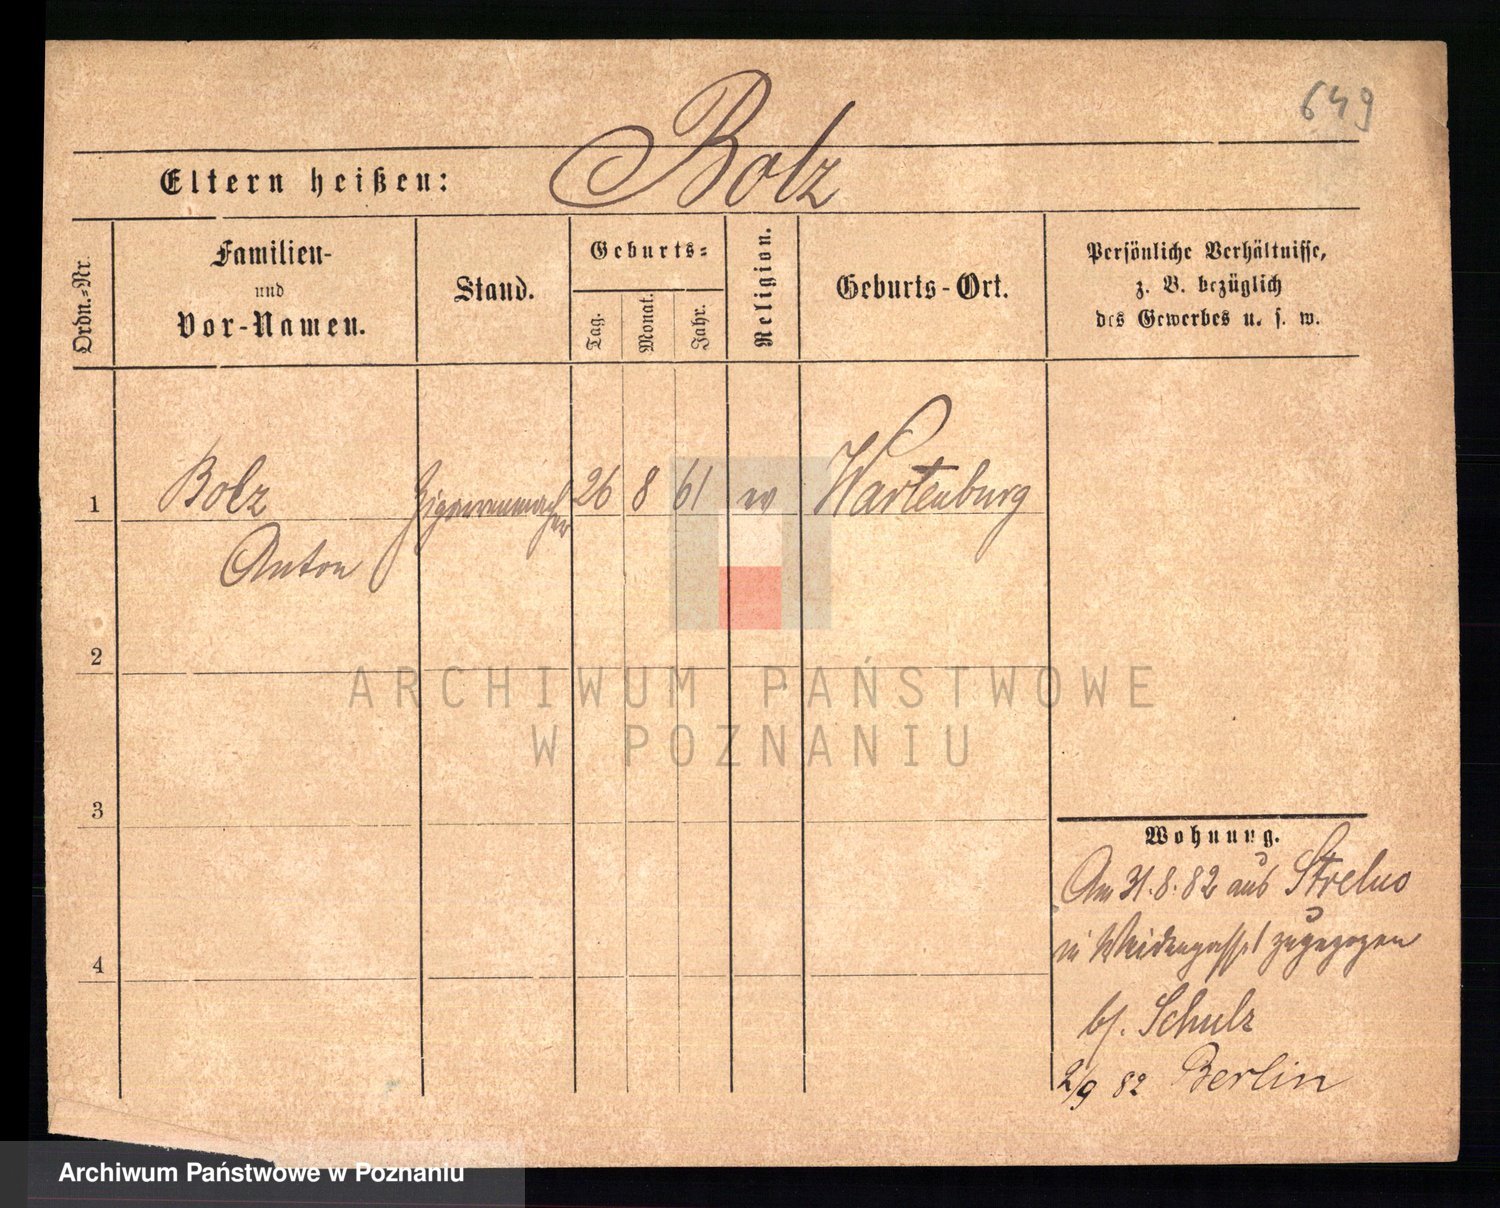 649
Bolz
Eltern heißen:
Ordn.-Nr.
Familien-
und
Vor-Namen.
Stand.
Geburts-
Tag.
Monat.
Jahr.
Religion.
Geburts-Ort.
Persönliche Verhältnisse,
z. B. bezüglich
des Gewerbes u. s. w.
1
Bolz
Anton
Zigarrenmacher
26
8
61
ev
Wartenburg
2
3
4
Wohnung.
Am 31.8.82 aus Strelno
in Weidengasse 1 zugezogen
bj. Schulz
2/9 82 Berlin
ARCHIWUM PAŃSTWOWE
W POZNANIU
Archiwum Państwowe w Poznaniu